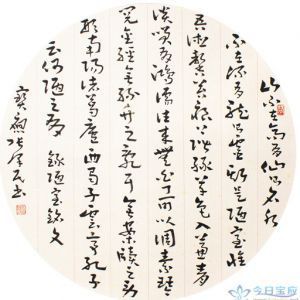 山不在高有仙則名水
不在深有龍則靈斯是陋室惟
吾德馨苔痕上階綠草色入簾青
談笑有鴻儒往來無白丁可以調素琴
閱金經無絲竹之亂耳無案牘之勞
形南陽諸葛廬西蜀子雲亭孔子
云何陋之有 錄陋室銘文
寶應 書
今日宝应